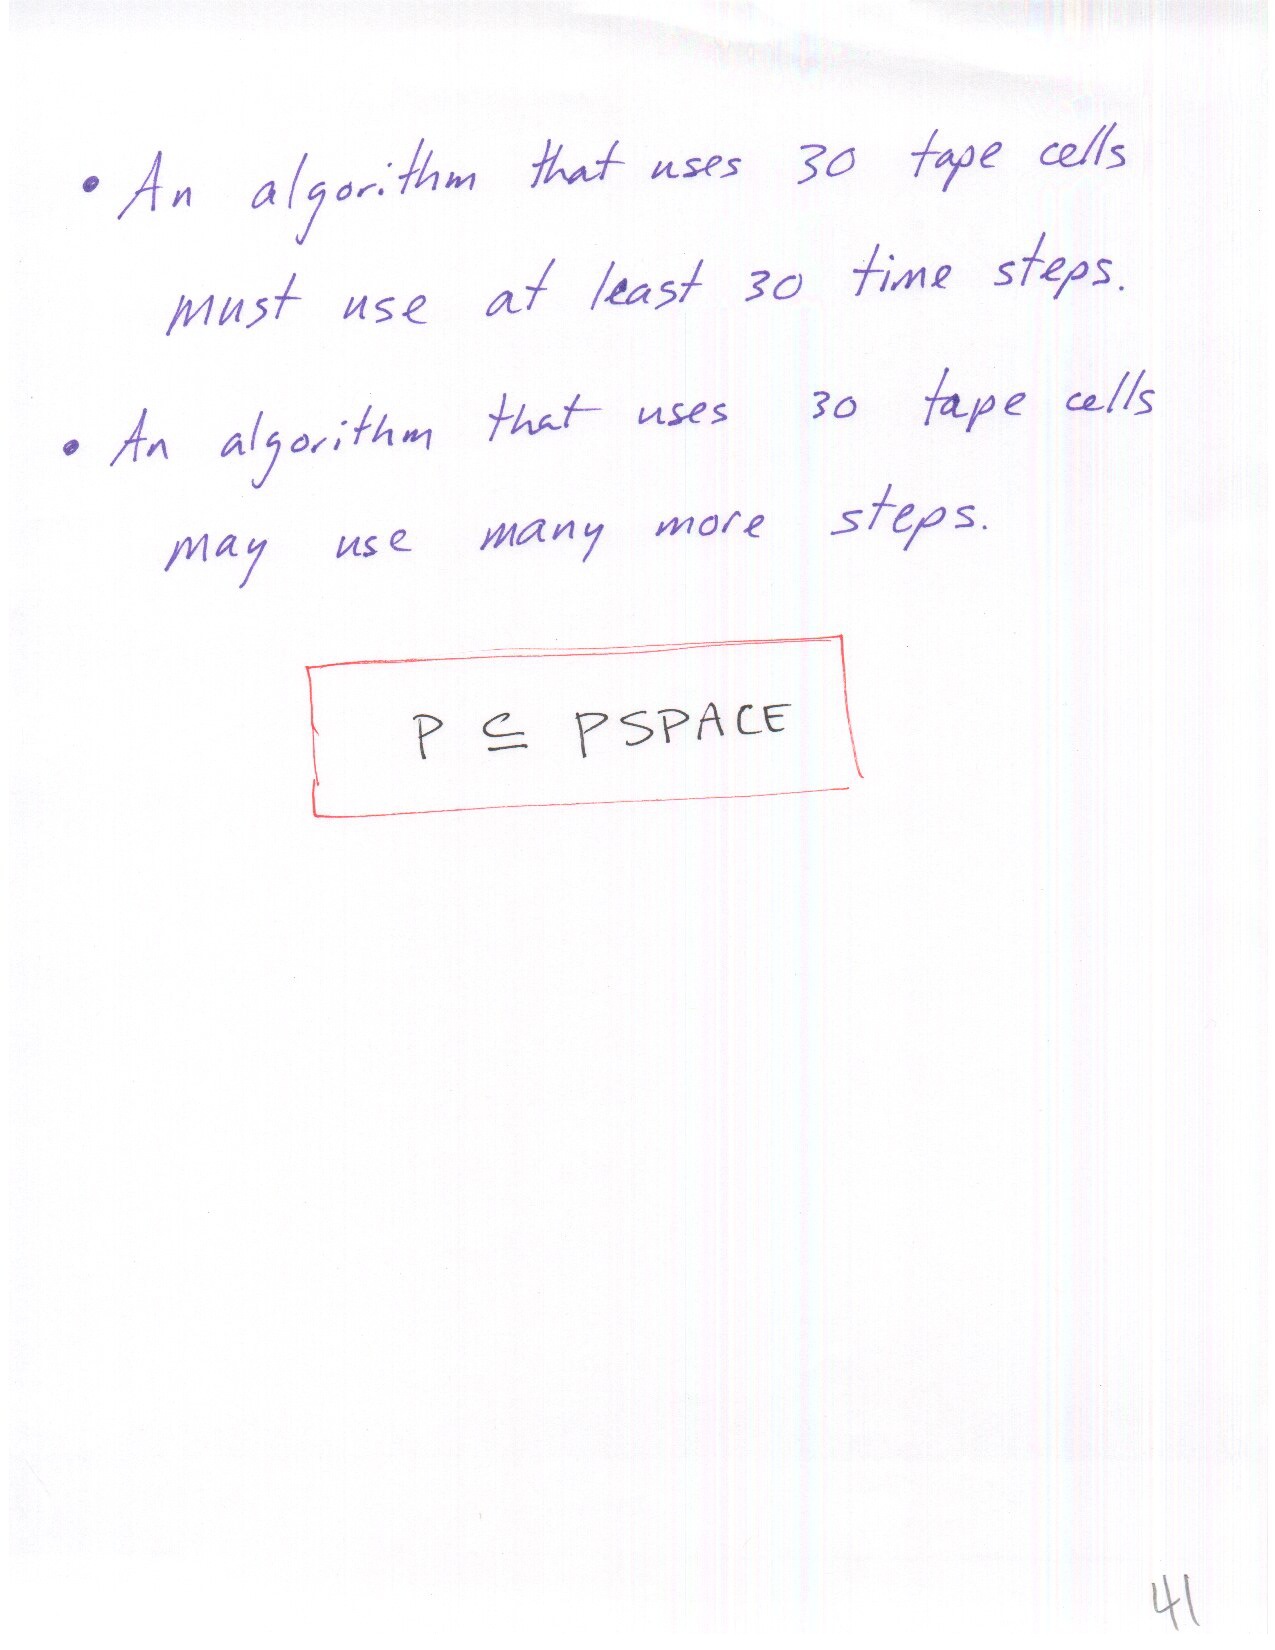 • An algorithm that uses 30 tape cells
must use at least 30 time steps.
• An algorithm that uses 30 tape cells
may use many more steps.
P ⊆ PSPACE
41